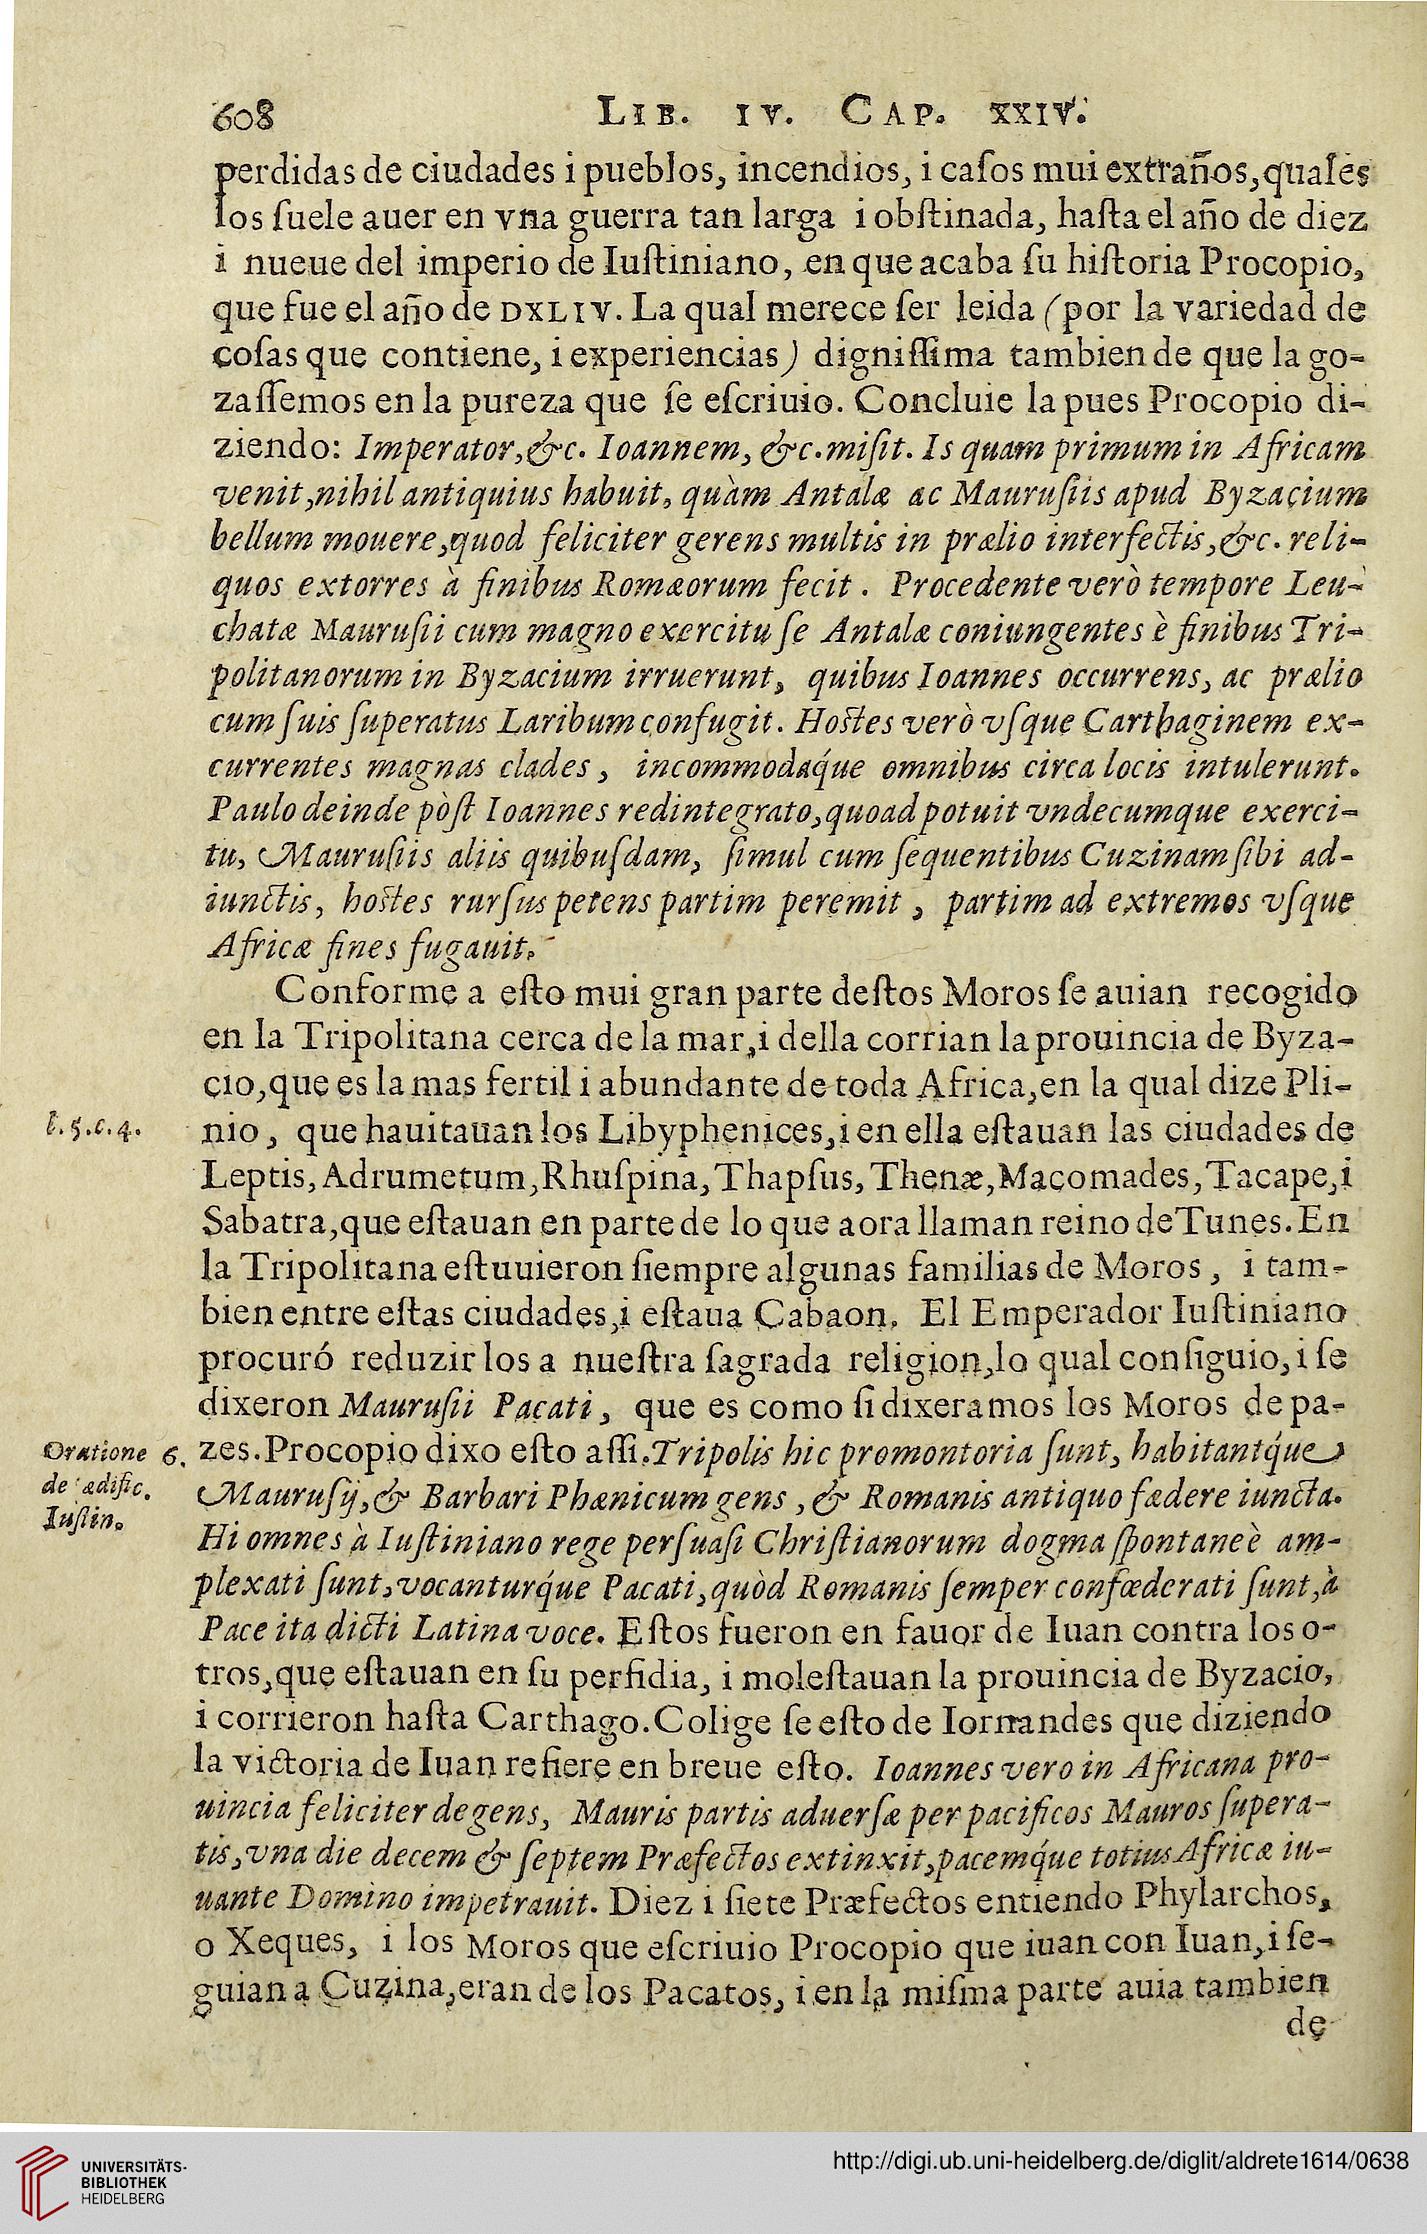 608 LIB. IV. CAP. XXIV.
perdidas de ciudades i pueblos, incendios, i caſos mui extraños, quales
los ſuele auer en vna guerra tan larga i obſtinada, haſta el año de diez
i nueue del imperio de Iuſtiniano, en que acaba ſu hiſtoria Procopio,
que fue el año de DXLIV. La qual merece ſer leida (por la variedad de
coſas que contiene, i experiencias) digniſſima tambien de que la go-
zaſſemos en la pureza que ſe eſcriuio. Concluie la pues Procopio di-
ziendo: Imperator, &c. Ioannem, &c. miſit. Is quam primum in Africam
venit, nihil antiquius habuit, quàm Antalæ ac Mauruſiis apud Byzacium
bellum mouere, quod feliciter gerens multis in prælio interfectis, &c. reli-
quos extorres à finibus Romæorum fecit. Procedente verò tempore Leu-
chatæ Mauruſii cum magno exercitu ſe Antalæ coniungentes è finibus Tri-
politanorum in Byzacium irruerunt, quibus Ioannes occurrens, ac prælio
cum ſuis ſuperatus Laribum confugit. Hostes verò vſque Carthaginem ex-
currentes magnas clades, incommodaq́ue omnibus circa locis intulerunt.
Paulo deinde pòſt Ioannes redintegrato, quoad potuit vndecumque exerci-
tu, Mauruſiis aliis quibuſdam, ſimul cum ſequentibus Cuzinam ſibi ad-
iunctis, hostes rurſus petens partim peremit, partim ad extremos vſque
Africæ fines fugauit.
Conforme a eſto mui gran parte deſtos Moros ſe auian recogido
en la Tripolitana cerca de la mar, i della corrian la prouincia de Byza-
cio, que es la mas fertil i abundante de toda Africa, en la qual dize Pli-
l. 5. c. 4. nio, que hauitauan los Libyphenices, i en ella eſtauan las ciudades de
Leptis, Adrumetum, Rhuſpina, Thapſus, Thenæ, Macomades, Tacape, i
Sabatra, que eſtauan en parte de lo que aora llaman reino de Tunes. En
la Tripolitana eſtuuieron ſiempre algunas familias de Moros, i tam-
bien entre eſtas ciudades, i eſtaua Cabaon. El Emperador Iuſtiniano
procuró reduzir los a nueſtra ſagrada religion, lo qual conſiguio, i ſe
dixeron Mauruſii Pacati, que es como ſi dixeramos los Moros de pa-
Oratione 6. zes. Procopio dixo eſto aſſi. Tripolis hic promontoria ſunt, habitantq́ue
de ædific. Mauruſij, & Barbari Phænicum gens, & Romanis antiquo fædere iuncta.
Iuſtin. Hi omnes à Iuſtiniano rege perſuaſi Chriſtianorum dogma ſpontaneè am-
plexati ſunt, vocanturq́ue Pacati, quòd Romanis ſemper confœderati ſunt, à
Pace ita dicti Latina voce. Eſtos fueron en fauor de Iuan contra los o-
tros, que eſtauan en ſu perfidia, i moleſtauan la prouincia de Byzacio,
i corrieron haſta Carthago. Colige ſe eſto de Iornandes que diziendo
la victoria de Iuan refiere en breue eſto. Ioannes vero in Africana pro-
uincia feliciter degens, Mauris partis aduerſæ per pacificos Mauros ſupera-
tis, vna die decem & ſeptem Præfectos extinxit, pacemq́ue totius Africæ iu-
uante Domino impetrauit. Diez i ſiete Præfectos entiendo Phylarchos,
o Xeques, i los Moros que eſcriuio Procopio que iuan con Iuan, i ſe-
guian a Cuzina, eran de los Pacatos, i en la miſma parte auia tambien
de
UNIVERSITÄTS-
BIBLIOTHEK
HEIDELBERG
http://digi.ub.uni-heidelberg.de/diglit/aldrete1614/0638